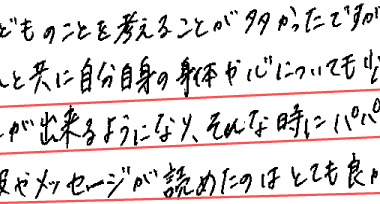 どものことを考えることが多かったですが
と共に自分自身の身体や心についても少
が出来るようになり、そんな時にパパ
やメッセージが読めたのはとても良か